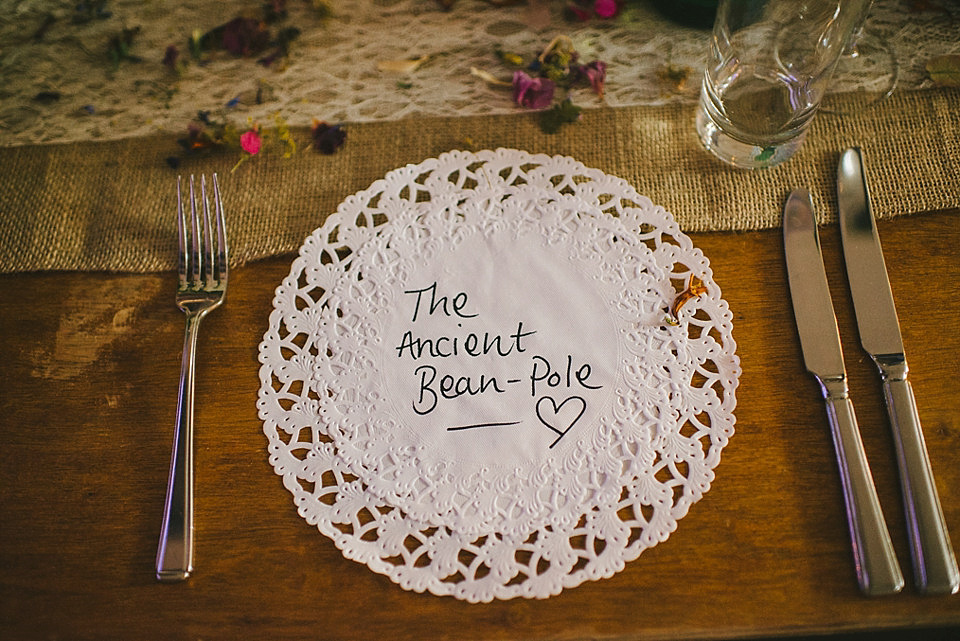 The
Ancient
Bean-Pole